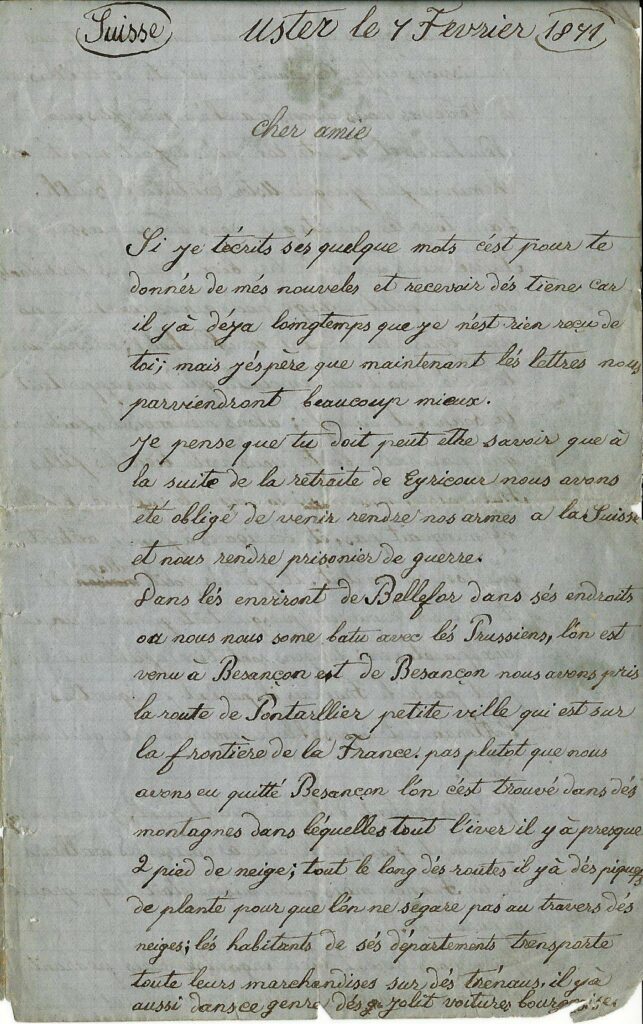 Suisse Uster le 7 Fevrier 1871
cher amie
Si je técrits sés quelque mots cést pour te
donnér de més nouveles et recevoir dés tiene car
il y à déja loingtemps que je n'est rien reçu de
toi; mais j'éspère que maintenant lés lettres nous
parviendront beaucoup mieux.
Je pense que tu doit peut ethe savoir que à
la suite de la retraite de Eyricour nous avons
été obligé de venir rendre nos armes a la Suisse
et nous rendre prisonier de guerre.
Dans lés environt de Bellefor dans sés endroits
ou nous nous some batu avec lés Prussiens, l'on est
venu à Besançon est de Besançon nous avons pris
la route de Pontarllier petite ville qui est sur
la frontière de la France. pas plutot que nous
avons eu quitté Besançon l'on cést trouvé dans dés
montagnes dans léquelles tout l'iver il y à presque
2 pied de neige; tout le long dés routes il y à dés piques
de planté pour que l'on ne ségare pas au travers dés
neiges; lés habitants de sés départements trensporte
toute leurs marchandises sur dés trénaus. il y à
aussi dans ce genre dés jolit voitures bourgoises